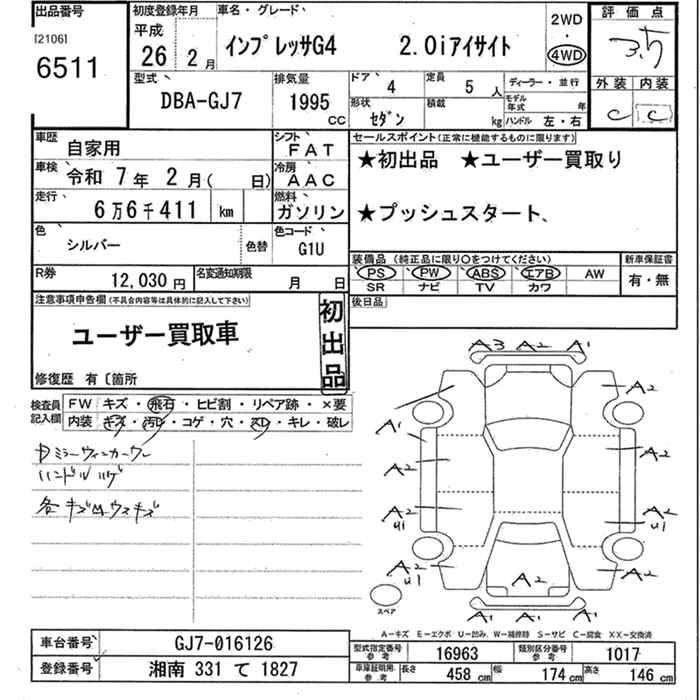 出品番号 初度登録年月 車名・グレード、 評価点
[2106] 平成 2WD
6511 26年2月 インプレッサG4 2.0iアイサイト 4WD 3.5
型式 排気量 ドア 4 定員 5人 ディーラー・並行 外装 内装
DBA-GJ7 1995cc 形状 セダン 積載 kg モデル年式 年 C C
ハンドル 左・右
車歴 自家用 シフト FAT セールスポイント(正常に機能するものに限ります)
車検 令和7年2月( 日) 冷房 AAC ★初出品 ★ユーザー買取り
走行 6万6千411km 燃料 ガソリン ★プッシュスタート、
色 シルバー 色替 色コード G1U
装備品(純正品に限り○をつけてください) 新車保証書
PS PW ABS エアB AW 有・無
R券 12,030円 名変通知期限 月 日 SR ナビ TV カワ
注意事項申告欄(不具合内容等は具体的に記入して下さい) 後日品
ユーザー買取車 初出品
修復歴 有〔箇所
検査員記入欄 FW キズ・飛石・ヒビ割・リペア跡・×要
内装 キズ・汚レ・コゲ・穴・スレ・キレ・破レ
ハンドルハゲ
A3 A2 A1
A2
A1
A2 A2
A2 A2
U1 U1
A2 A2 A2
U1
A1 A1 A1
スペア
A-キズ E-エクボ U-凹み W-補修跡 S-サビ C-腐食 XX-交換済
車台番号 GJ7-016126 型式指定番号 参考 16963 類別区分番号 参考 1017
登録番号 湘南 331 て 1827 車庫証明用.参考 長さ 458cm 幅 174cm 高さ 146cm